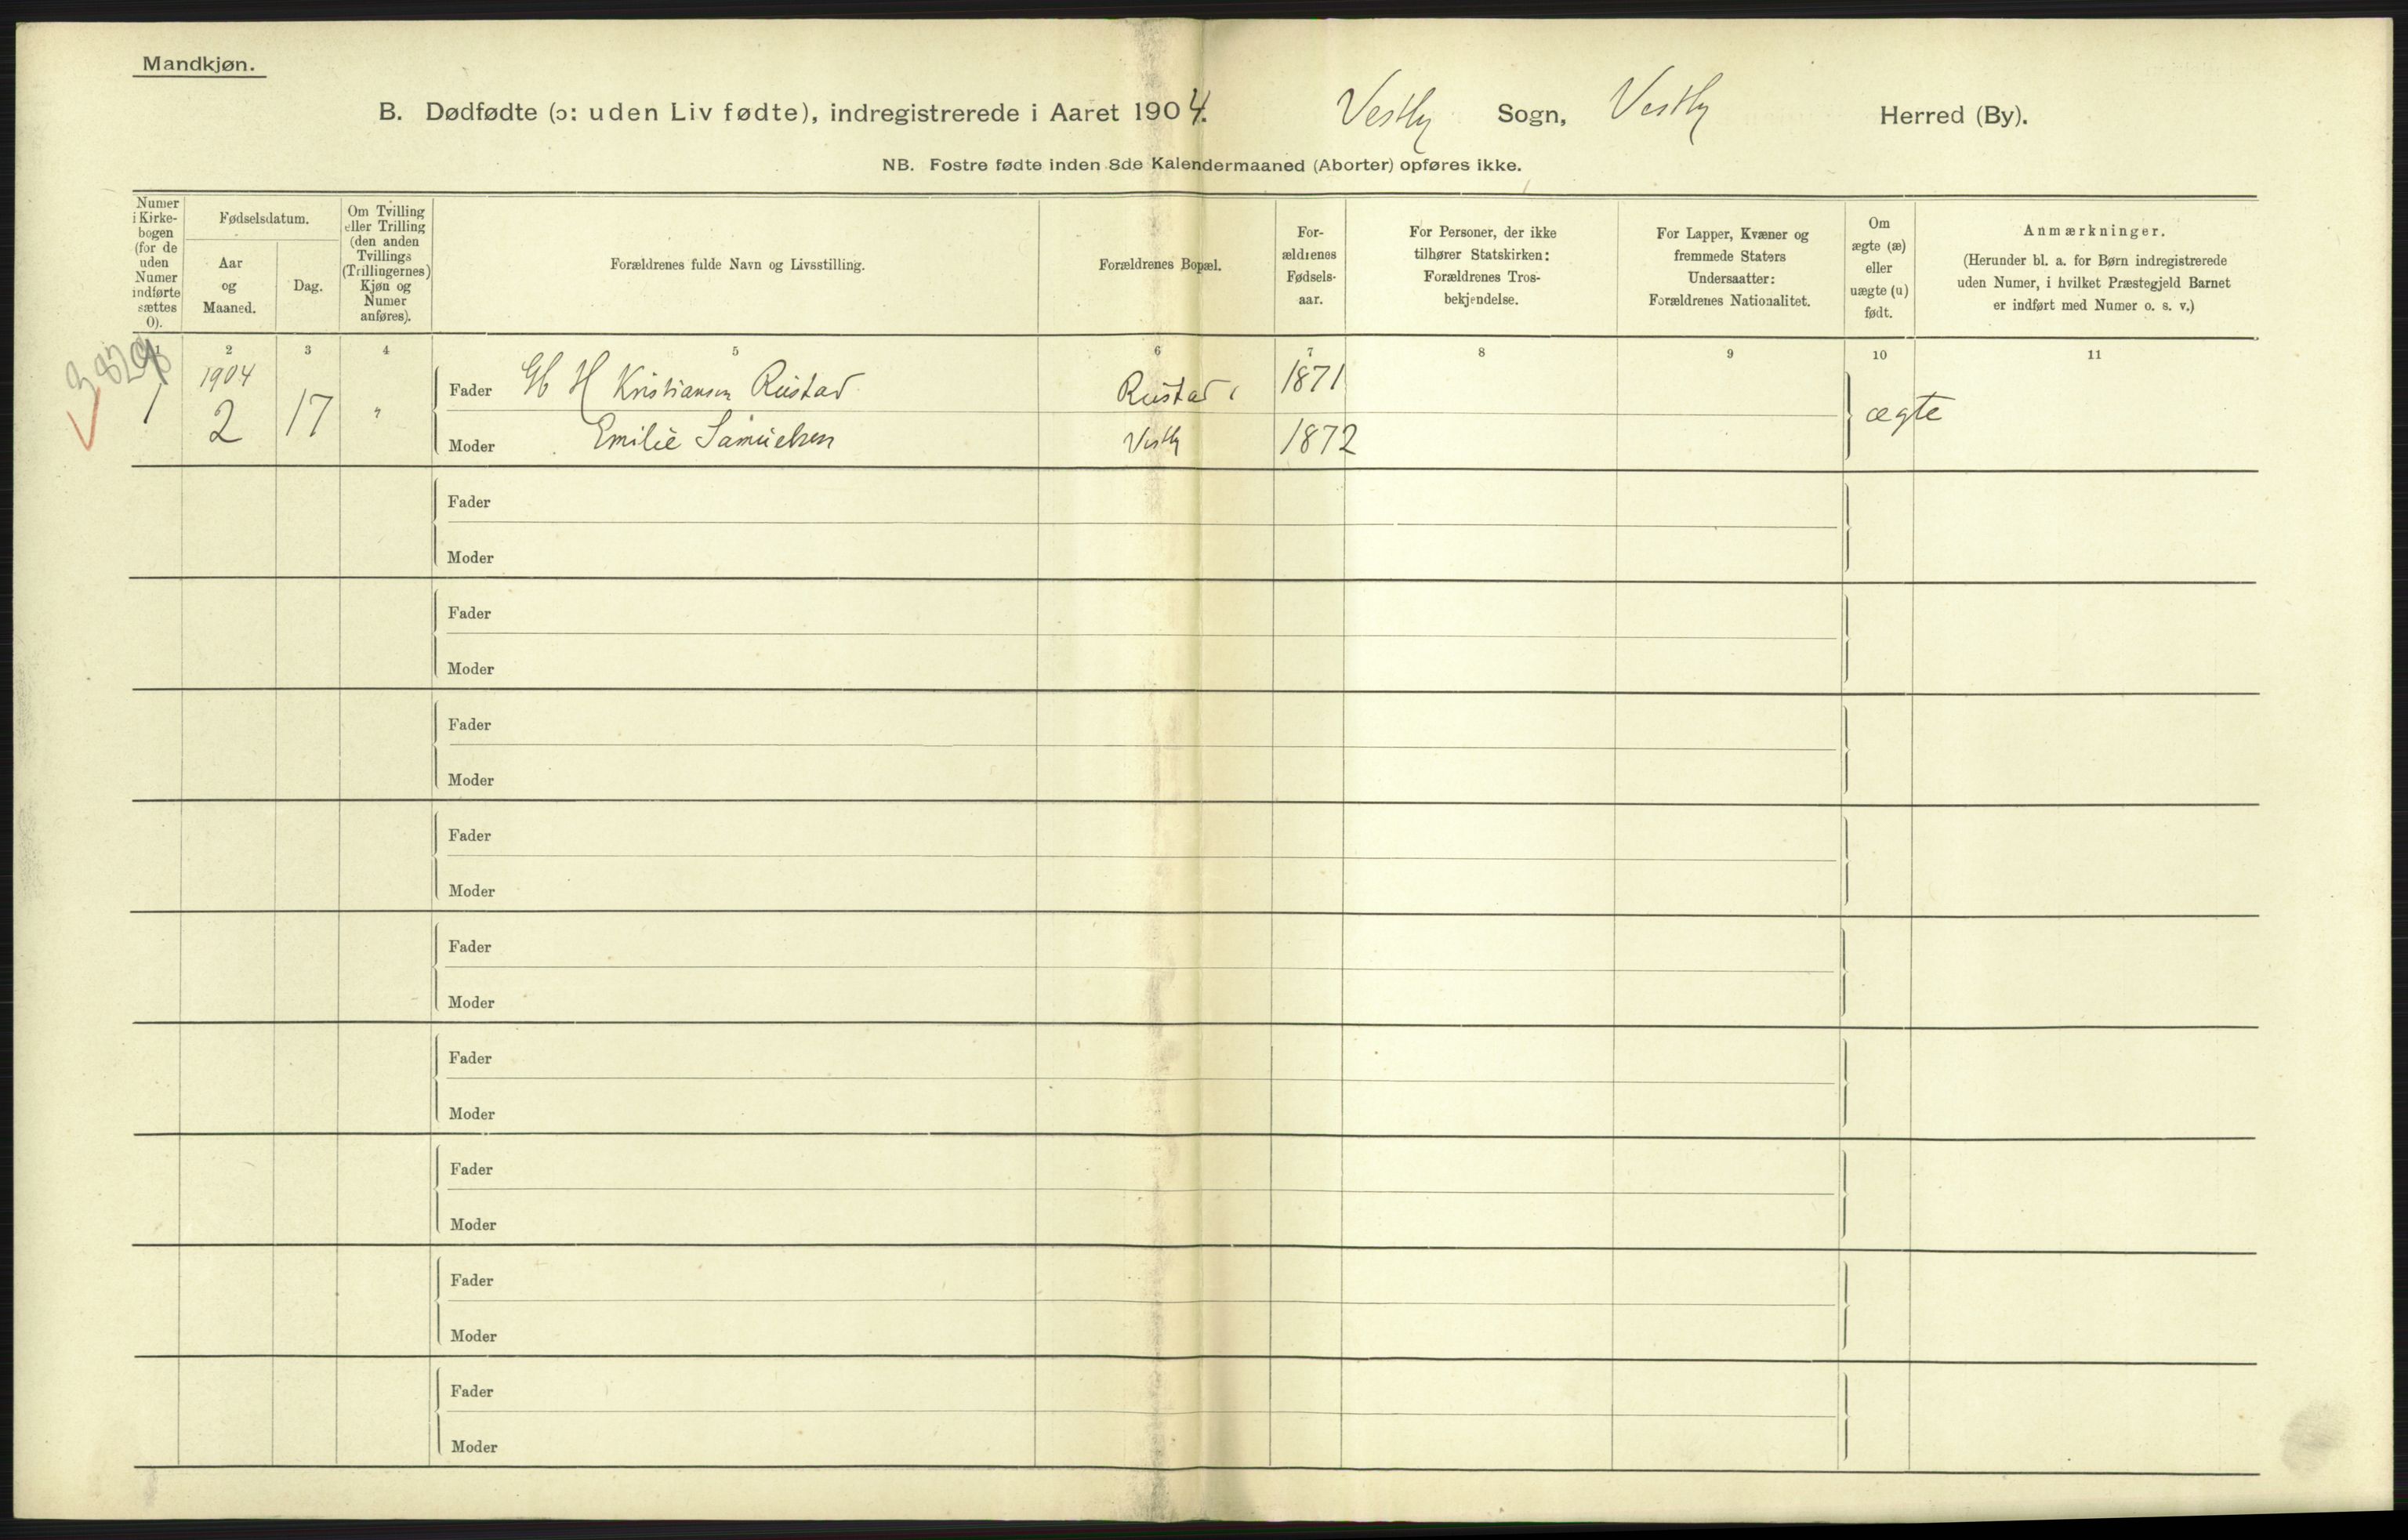 Mandkjøn.
B. Dødfødte (ɔ: uden Liv fødte), indregistrerede i Aaret 1904. Vestby Sogn, Vestby Herred (By).
NB. Fostre fødte inden 8de Kalendermaaned (Aborter) opføres ikke.
Numer
i Kirke-
bogen
(for de
uden
Numer
indførte
sættes
0).
Fødselsdatum.
Aar
og
Maaned.
Dag.
Om Tvilling
eller Trilling
(den anden
Tvillings
(Trillingernes)
Kjøn og
Numer
anføres).
Forældrenes fulde Navn og Livsstilling.
Forældrenes Bopæl.
For-
ældrenes
Fødsels-
aar.
For Personer, der ikke
tilhører Statskirken:
Forældrenes Tros-
bekjendelse.
For Lapper, Kvæner og
fremmede Staters
Undersaatter:
Forældrenes Nationalitet.
Om
ægte (æ)
eller
uægte (u)
født.
Anmærkninger.
(Herunder bl. a. for Børn indregistrerede
uden Numer, i hvilket Præstegjeld Barnet
er indført med Numer o. s. v.)
1 2 3 4 5 6 7 8 9 10 11
3829
1904
Fader H Kristiansen Rustad Rustad 1871
1 2 17 " ægte
Moder Emilie Samuelsen Vestby 1872
Fader
Moder
Fader
Moder
Fader
Moder
Fader
Moder
Fader
Moder
Fader
Moder
Fader
Moder
Fader
Moder
Fader
Moder